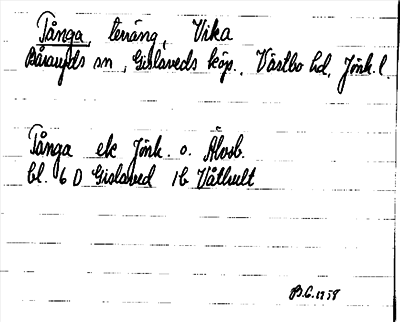 Tånga, terräng, Vika
Båraryds sn, Gislaveds köp., Västbo hd, Jönk. l.
Tånga ek Jönk. o. Älvsb.
bl. 6 D Gislaved 1b Våthult
B.G. 1958